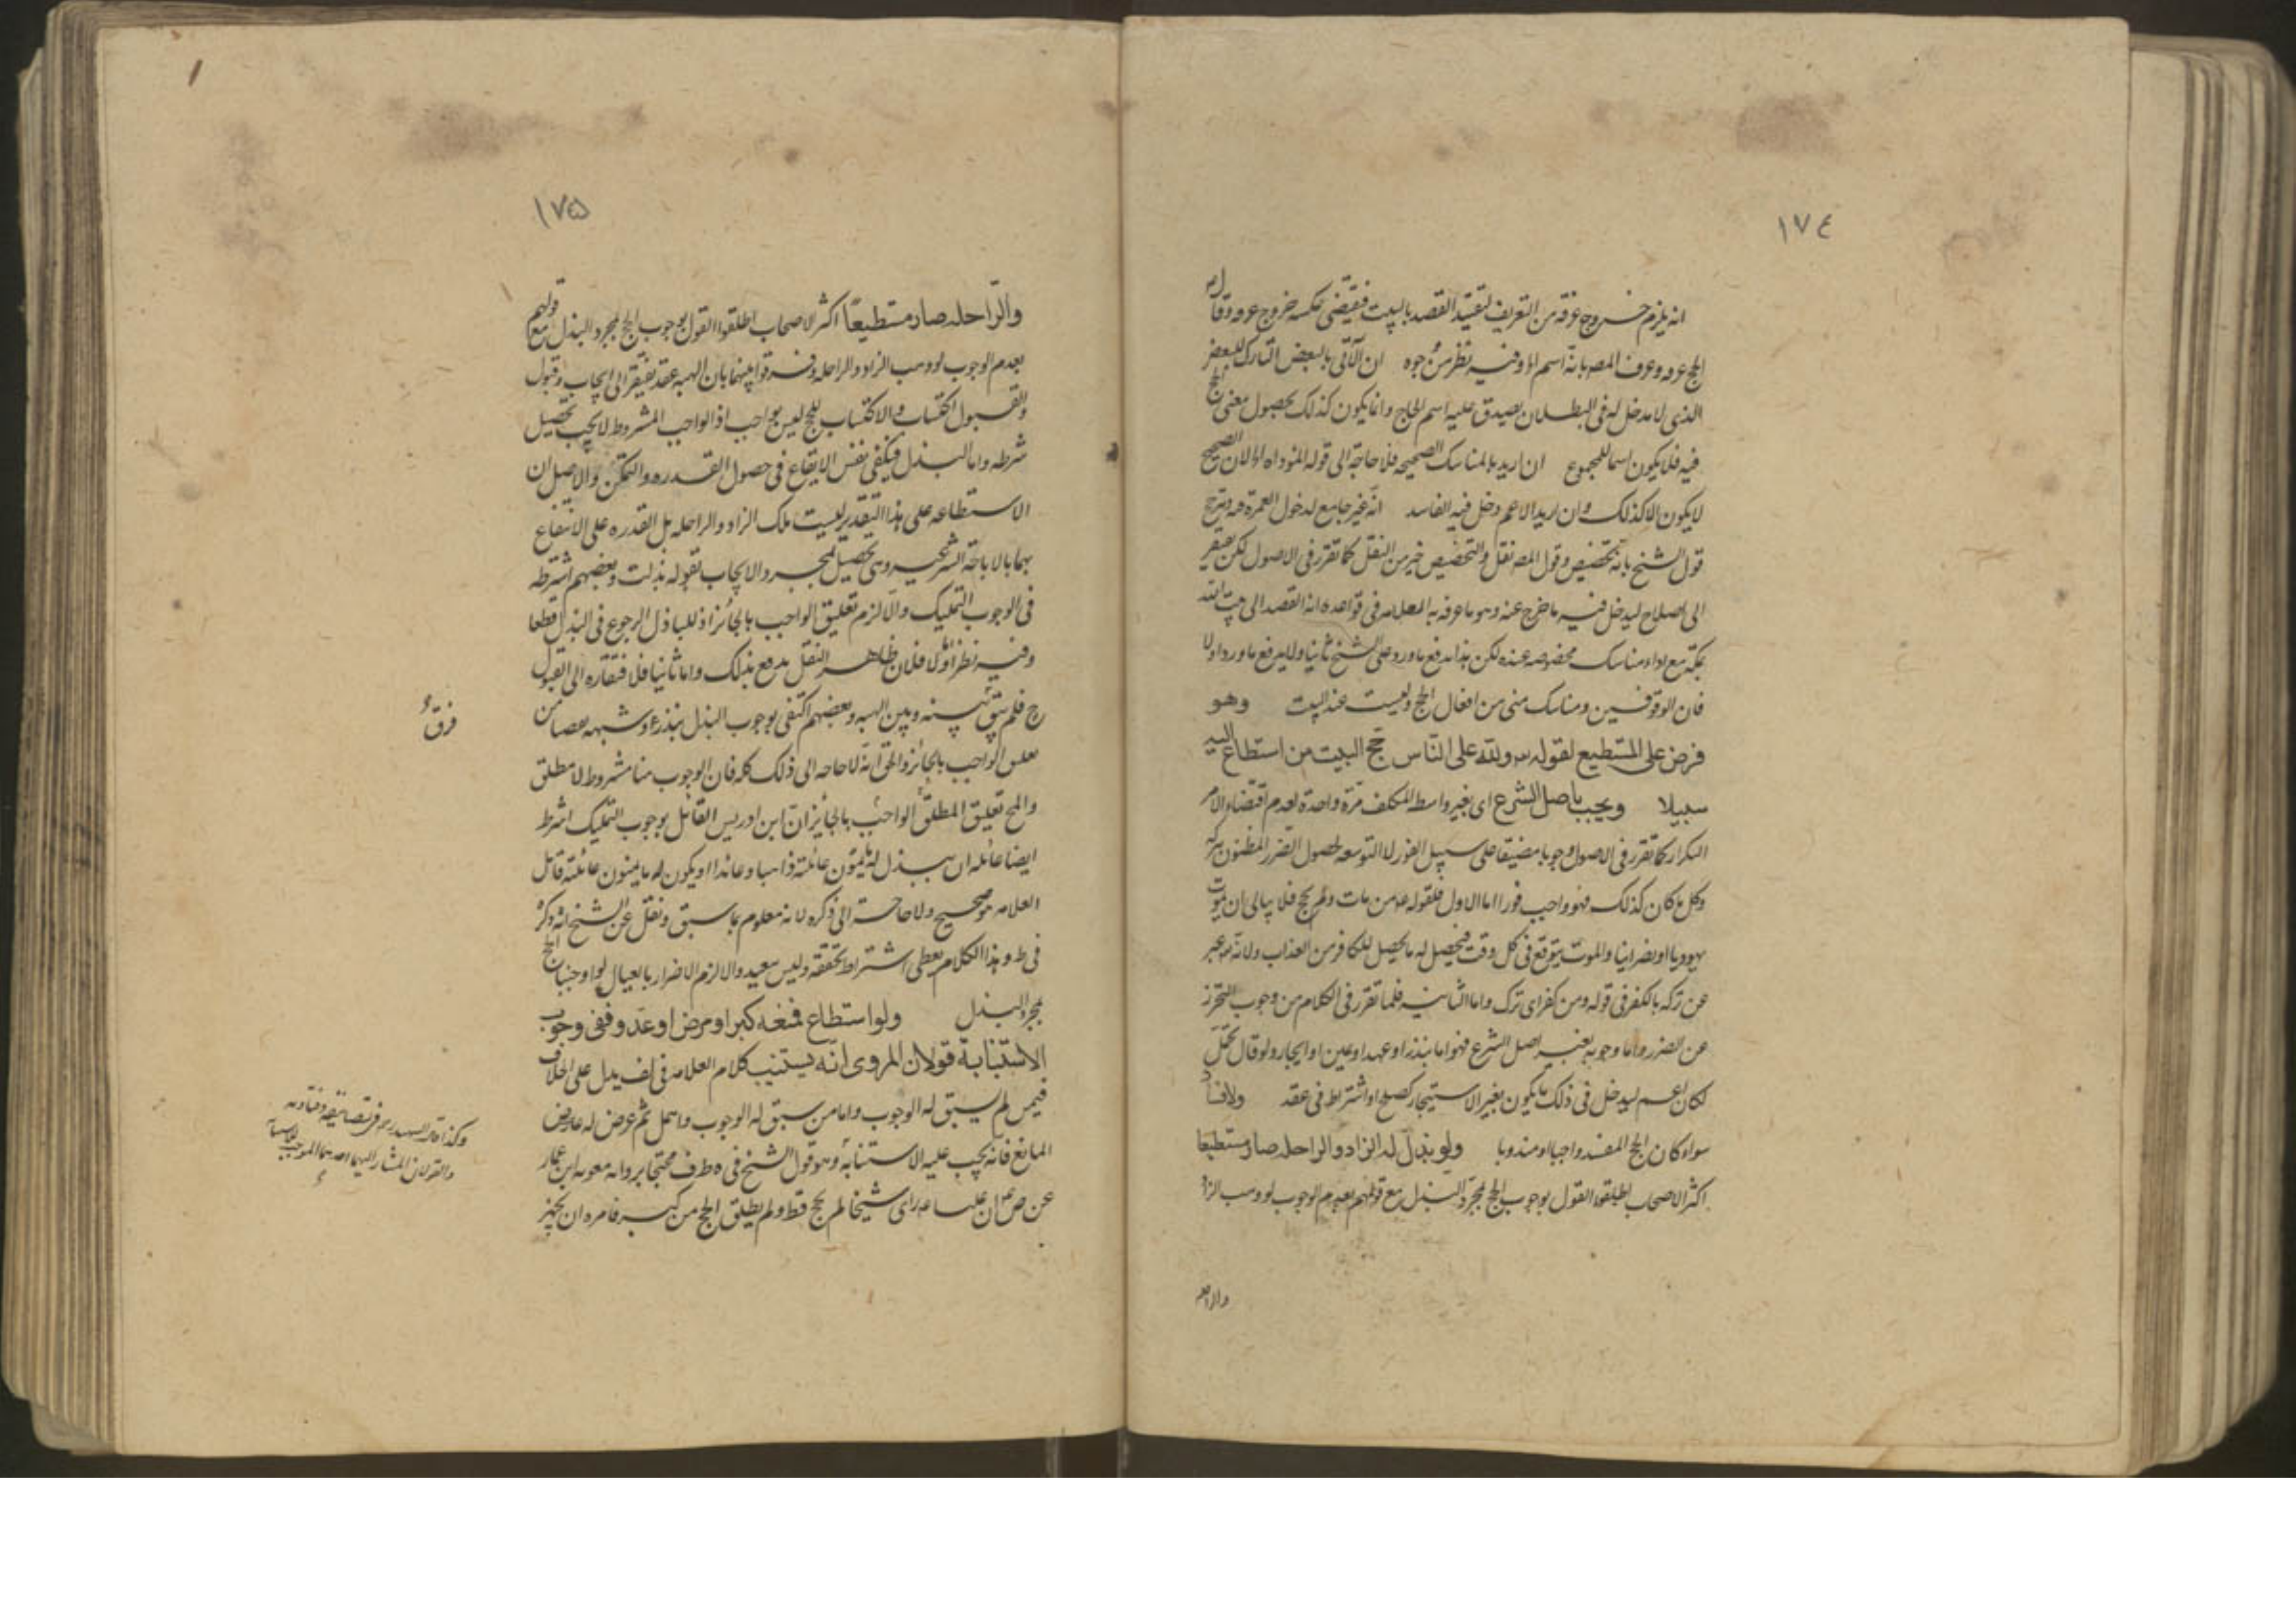 ١٧٤
انه يلزم خروج عرفة من التعريف لتقييد القصد بالبيت فيقتضى عكسه خروج عرفه وقال
الحج عرفه وعرف المصه بانه اسم اه وفيه نظر من وجوه ان الآتى بالبعض التارك للبعض
الذى لا مدخل له فى البطلان يصدق عليه اسم الحاج وانما يكون كذلك بحصول معنى الحج
فيه فلا يكون اسما للمجموع ان اريد بالمناسك الصحيحه فلا حاجة الى قوله المؤداه اه لان الصحيح
لا يكون الا كذلك وان اريد الاعم دخل فيه الفاسد انه غير جامع لدخول العمرة فيه ويترجح
قول الشيخ بانه تخصيص وقول المصه نقل والتخصيص خير من النقل كما تقرر فى الاصول لكن يفتقر
الى اصلاح ليدخل فيه ما خرج عنه وهو ما عرفه به العلامه فى قواعده انه القصد الى بيت الله
بمكة مع اداء مناسك مخصوصه عنده لكن هذا يدفع ما ورد على الشيخ ثانيا ولا يدفع ما ورد اولا
فان الوقوفين ومناسك منى من افعال الحج وليست عند البيت وهو
فرض على المستطيع لقوله ولله على النّاس حجّ البيت من استطاع اليه
سبيلا ويجب باصل الشرع اى بغير واسطه المكلف مرّة واحدة لعدم اقتضاء الامر
التكرار كما تقرر فى الاصول وجوبا مضيقا على سبيل الفور لا التوسعه لحصول الضرر المظنون بتركه
وكل ما كان كذلك فهو واجب فورا اما الاول فلقوله من مات ولم يحج فلا يبالى ان يموت
يهوديا او نصرانيا والموت يتوقع فى كل وقت فيحصل له ما يحصل للكافر من العذاب ولانه عبر
عن تركه بالكفر فى قوله ومن كفر اى ترك واما الثانيه فلما تقرر فى الكلام من وجوب التحرز
عن الضرر واما وجوبه بغير اصل الشرع فهو اما بنذر او عهد او يمين او ايجار ولو قال تحمّل
لكان اعم ليدخل فى ذلك ما يكون بغير الاستيجار كصلح او اشتراط فى عقد ولافساد
سواء كان الحج المفسد واجبا او مندوبا ولو بذل له الزاد والراحله صار مستطيعا
اكثر الاصحاب اطلقوا القول بوجوب الحج بمجرّد البذل مع قولهم بعدم الوجوب لو وهب الزاد
والراحله
١٧٥
والرّاحله صار مستطيعاً اكثر الاصحاب اطلقوا القول بوجوب الحج بمجرد البذل مع قولهم
بعدم الوجوب لو وهب الزاد والراحله وفرقوا بينهما بان الهبه عقد يفتقر الى ايجاب وقبول
والقبول اكتساب والاكتساب للحج ليس بواجب اذ الواجب المشروط لا يجب تحصيل
شرطه واما البذل فيكفى نفس الايقاع فى حصول القدره والتمكن والاصل ان
الاستطاعه على هذا التقدير ليست ملك الزاد والراحله بل القدره على الانتفاع
بهما بالاباحة الشرعيه وهى تحصيل بمجرد الايجاب بقوله بذلت وبعضهم اشترطه
فى الوجوب التمليك والّا لزم تعليق الواجب بالجائز اذ للباذل الرجوع فى البذل قطعا
وفيه نظر اما اولا فلان ظاهر النقل يدفع ذلك واما ثانيا فلافتقاره الى القبول
ح فلم يبق بينه وبين الهبه وبعضهم اكتفى بوجوب البذل بنذر او شبهه من
فرق
الواجب بالجائز والحق انه لا حاجه الى ذلك كله فان الوجوب هنا مشروط لا مطلق
والمح تعليق المطلق الواجب بالجائز ان ابن ادريس القائل بوجوب التمليك اشترط
ايضا ان يبذل له ما يمون عائلته ذاهبا وعائدا او يكون له ما يمون عائلته قال
العلامه هو صحيح ولا حاجة الى ذكره لانه معلوم بما سبق ونقل عن الشيخ انه ذكره
فى ط وهذا الكلام يعطى اشتراط تحققه وليس ببعيد والا لزم الاضرار بالعيال لو اوجبنا الحج
بمجرد البذل ولو استطاع فمنعه كبر او مرض او عدو ففى وجوب
الاستنابة قولان المروى انّه يستنيب كلام العلامه فى لف يدل على الخلاف
فيمن لم يسبق له الوجوب واما من سبق له الوجوب واهمل ثم عرض له عارض
المانع فانه يجب عليه الاستنابه وهو قول الشيخ فى محتجا برواية معوية ابن عمار
عن ص ان عليا راى شيخا لم يحج قط ولم يطق الحج من كبره فامره ان يجهز